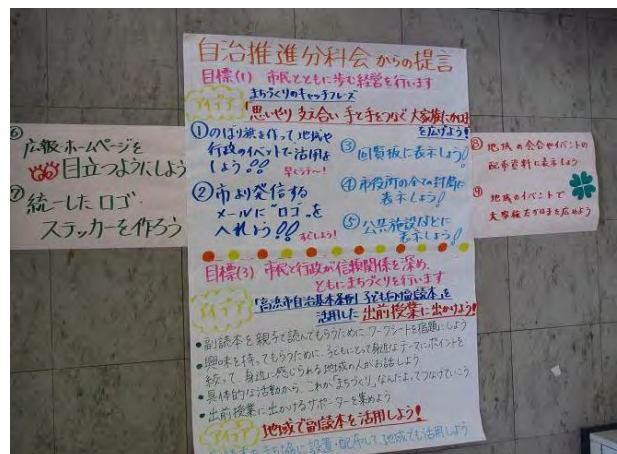 自治推進分科会からの提言
目標(1) 市民とともに歩む経営を行います
まちづくりのキャッチフレーズ
アイデア
「思いやり 支え合い 手と手をつなぐ 大家族たかはま」
を広げよう!
①のぼり旗を作って地域や
行政のイベントで活用
しよう!!
早くう〜!
②市より発信する
メールに"ロゴ"を
入れよう!!
すぐしよう!
③回覧板に表示しよう!
④市役所の全ての封筒に
表示しよう!
⑤公共施設などに
表示しよう!
⑥
広報・ホームページを
もっと目立つようにしよう
⑦
統一したロゴ・
ステッカーを作ろう
⑧ 地域の会合やイベントの
配布資料に表示しよう
⑨ 地域のイベントで
大家族たかはまを広めよう
目標(3) 市民と行政が信頼関係を深め、
ともにまちづくりを行います
アイデア
「高浜市自治基本条例 子ども向け副読本」を
活用した 出前授業に出かけよう!
•副読本を親子で読んでもらうために ワークシートを宿題にしよう
•興味を持ってもらうために、子どもにとって身近なテーマにポイントを
絞って、身近に感じられる地域の人がお話しよう
•具体的な活動から、これが「まちづくり」なんだよってつなげていこう
•出前授業に出かけるサポーターを集めよう
アイデア
地域で副読本を活用しよう!
に設置・配布して、地域でも活用しよう